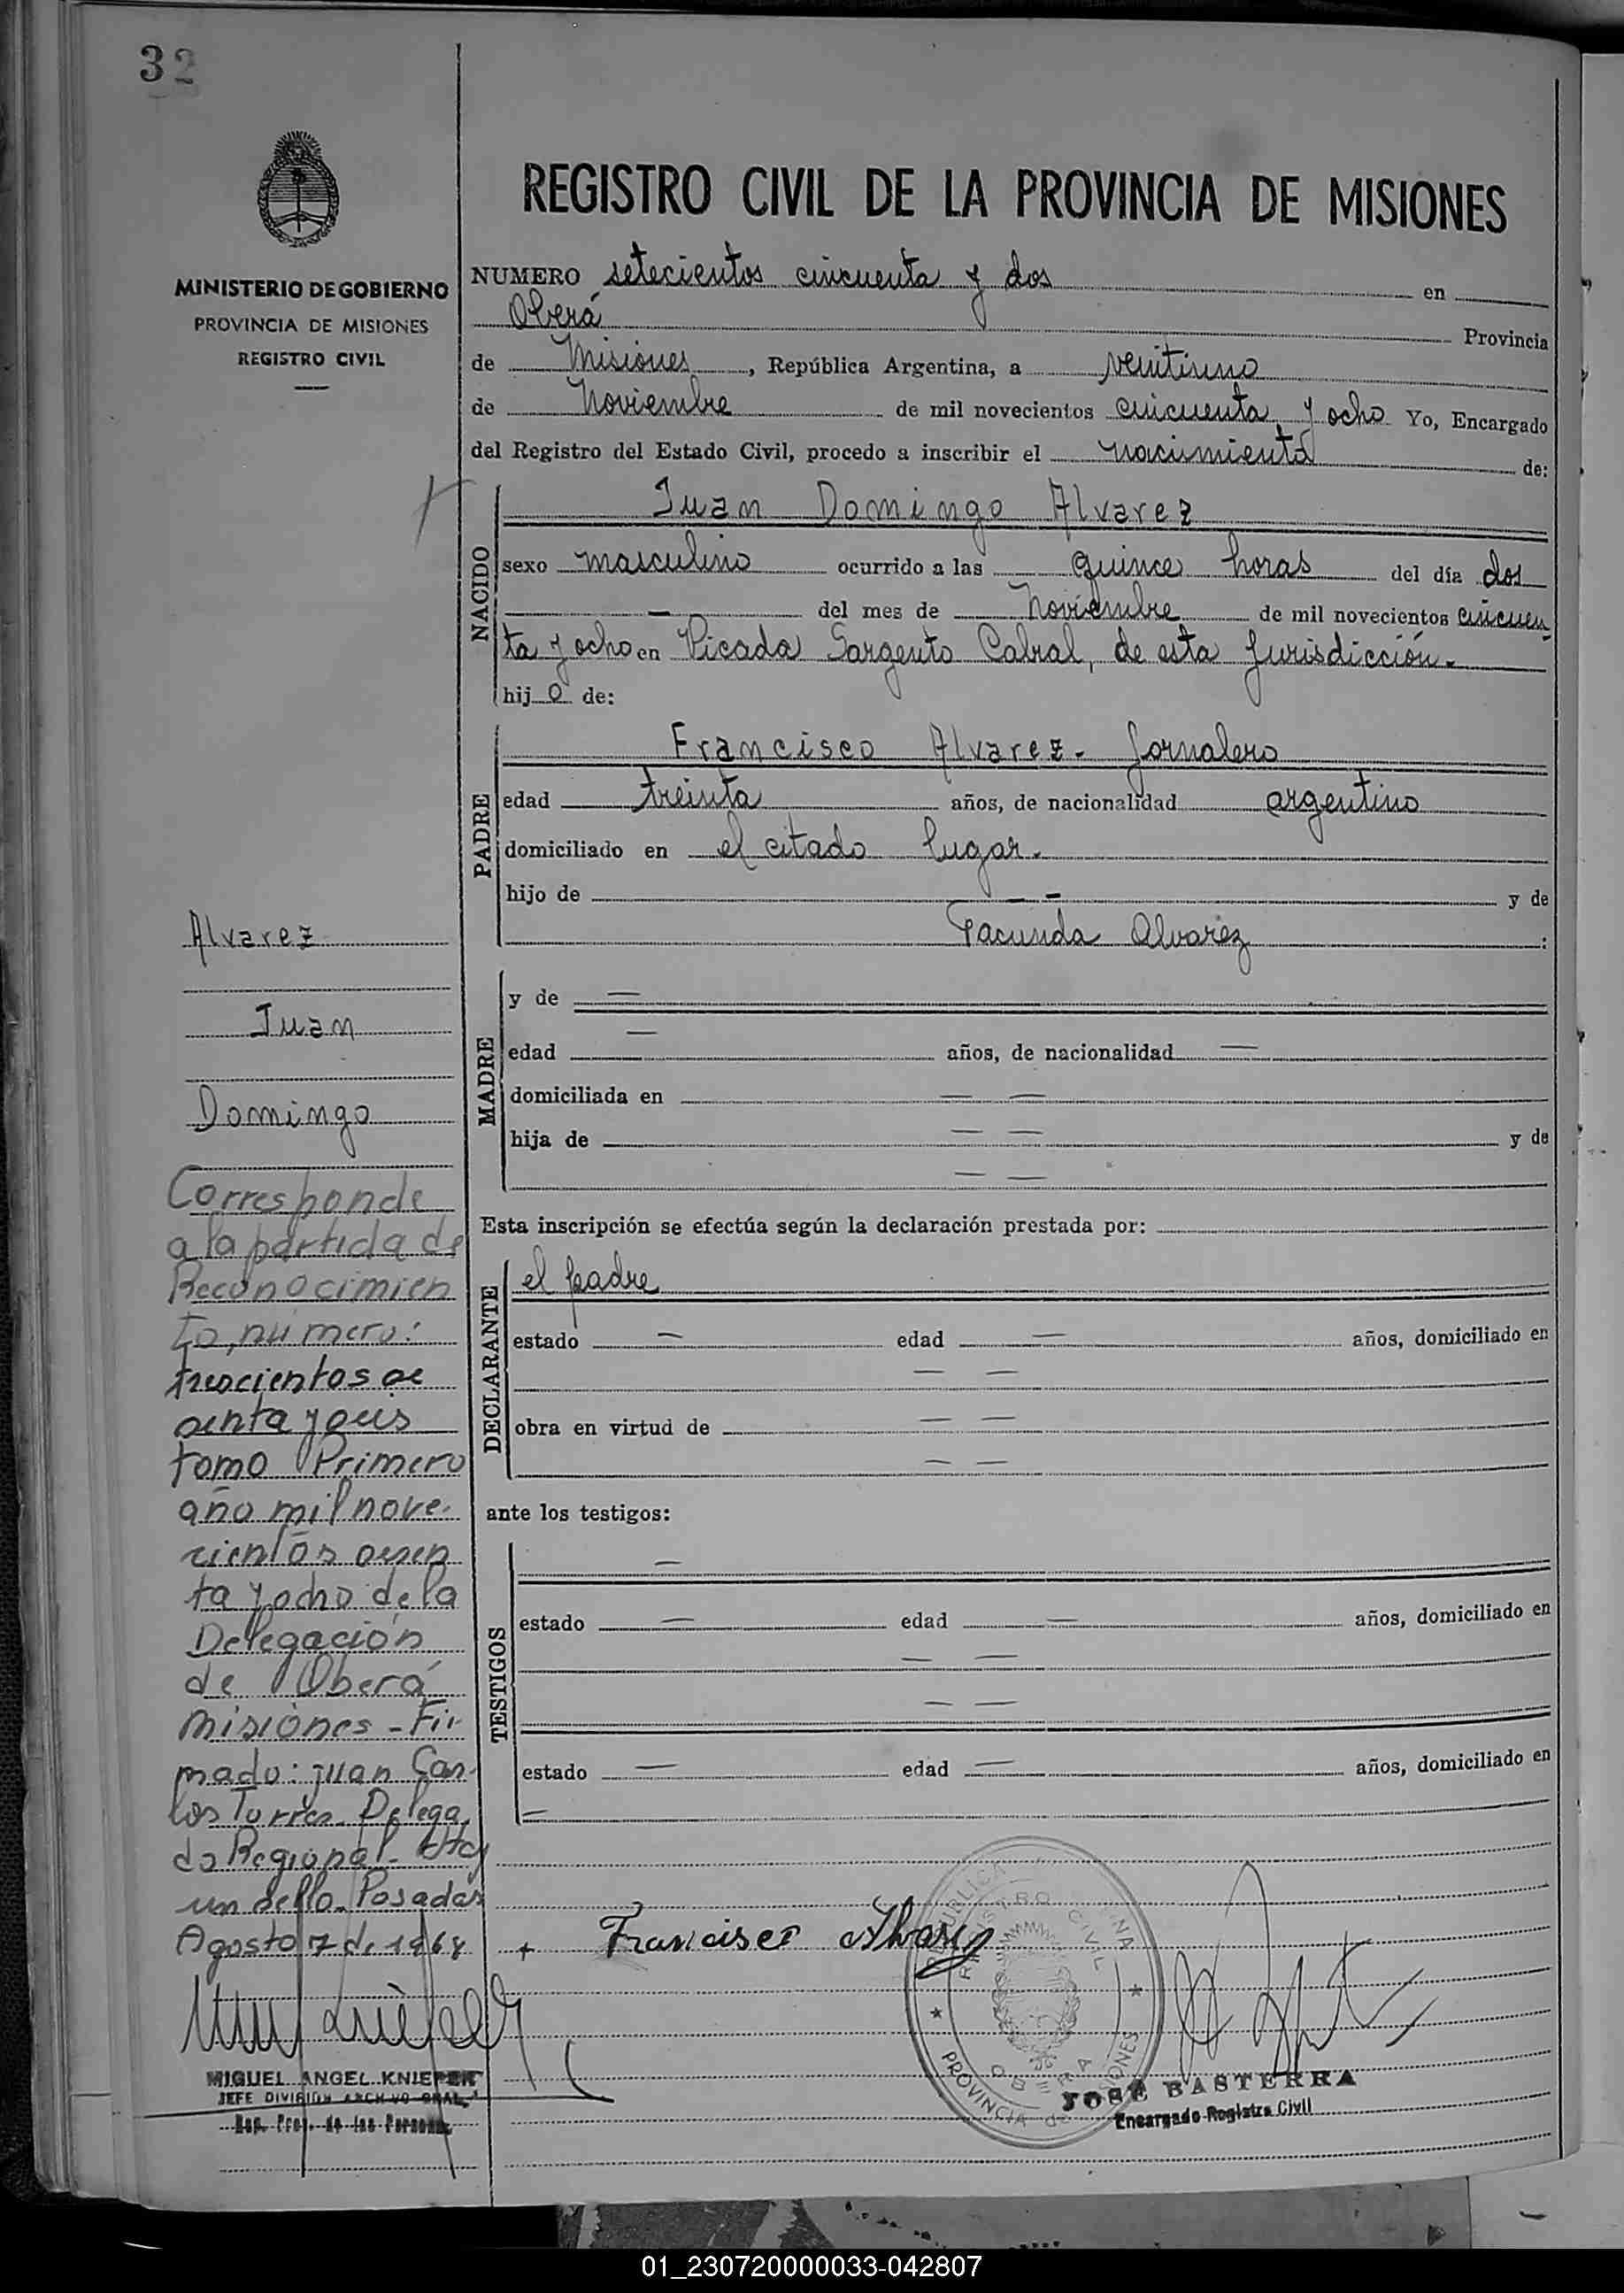 32
MINISTERIO DE GOBIERNO
PROVINCIA DE MISIONES
REGISTRO CIVIL
REGISTRO CIVIL DE LA PROVINCIA DE MISIONES
NUMERO setecientos cincuenta y dos en
Oberá Provincia
de Misiones, República Argentina, a veintiuno
de Noviembre de mil novecientos cincuenta y ocho Yo, Encargado
del Registro del Estado Civil, procedo a inscribir el nacimiento de:
NACIDO
Juan Domingo Alvarez
sexo masculino ocurrido a las quince horas del día dos
— del mes de Noviembre de mil novecientos cincuen
ta y ocho en Picada Sargento Cabral, de esta Jurisdicción.-
hijo de:
PADRE
Francisco Alvarez - Jornalero
edad treinta años, de nacionalidad argentino
domiciliado en el citado lugar.-
hijo de — — y de
Facunda Alvarez :
MADRE
y de —
edad — años, de nacionalidad —
domiciliada en — —
hija de — — y de
— —
Esta inscripción se efectúa según la declaración prestada por:
DECLARANTE
el padre
estado — edad — años, domiciliado en
— —
obra en virtud de — —
— —
ante los testigos:
TESTIGOS
—
estado — edad — años, domiciliado en
— —
— —
estado — edad — años, domiciliado en
—
Francisco Alvarez
REGISTRO CIVIL
PROVINCIA de MISIONES
OBERA
JOSÉ BASTERRA
Encargado Registro Civil
Alvarez
Juan
Domingo
Corresponde
a la partida de
Reconocimien
to, número:
trescientos
tomo Primero
año mil nove-
cientos sesen
ta y ocho de la
Delegación
de Oberá
Misiones - Fir
mado: Juan Car
los Torres - Delega
do Regional - Hay
un sello - Posadas
Agosto 7 de 1968
MIGUEL ANGEL KNIEPER
JEFE DIVISION ARCHIVO GRAL.
Reg. Prov. de las Personas
01_230720000033-042807